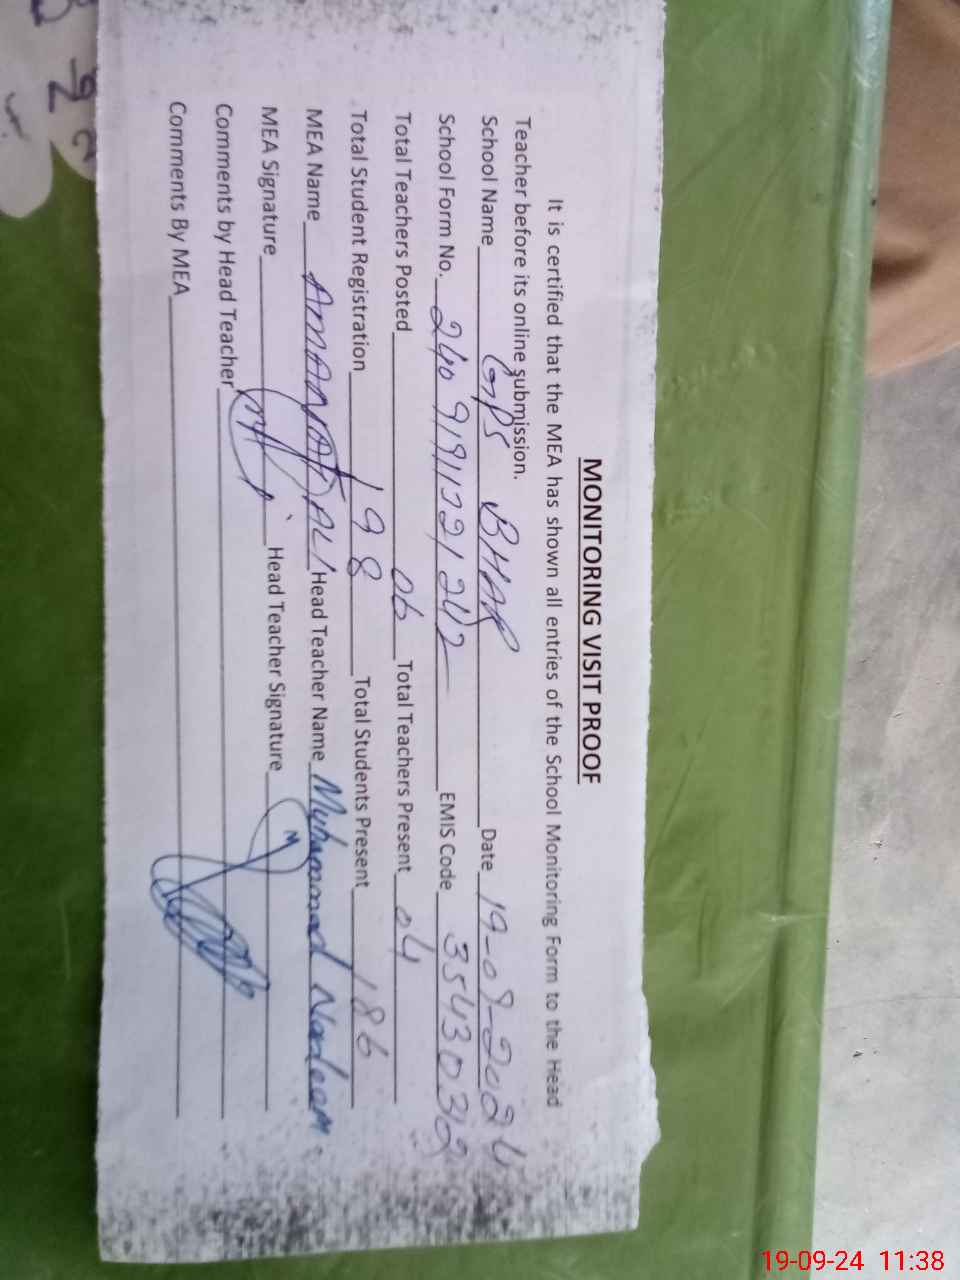 MONITORING VISIT PROOF
It is certified that the MEA has shown all entries of the School Monitoring Form to the Head
Teacher before its online submission.
School Name GPS BHAR Date 19-09-2024
School Form No. 240919113212412 EMIS Code 35430319
Total Teachers Posted 06 Total Teachers Present 04
Total Student Registration 198 Total Students Present 186
MEA Name AMANAT ALI Head Teacher Name Muhammad Nadeem
MEA Signature Head Teacher Signature
Comments by Head Teacher
Comments By MEA
19-09-24 11:38